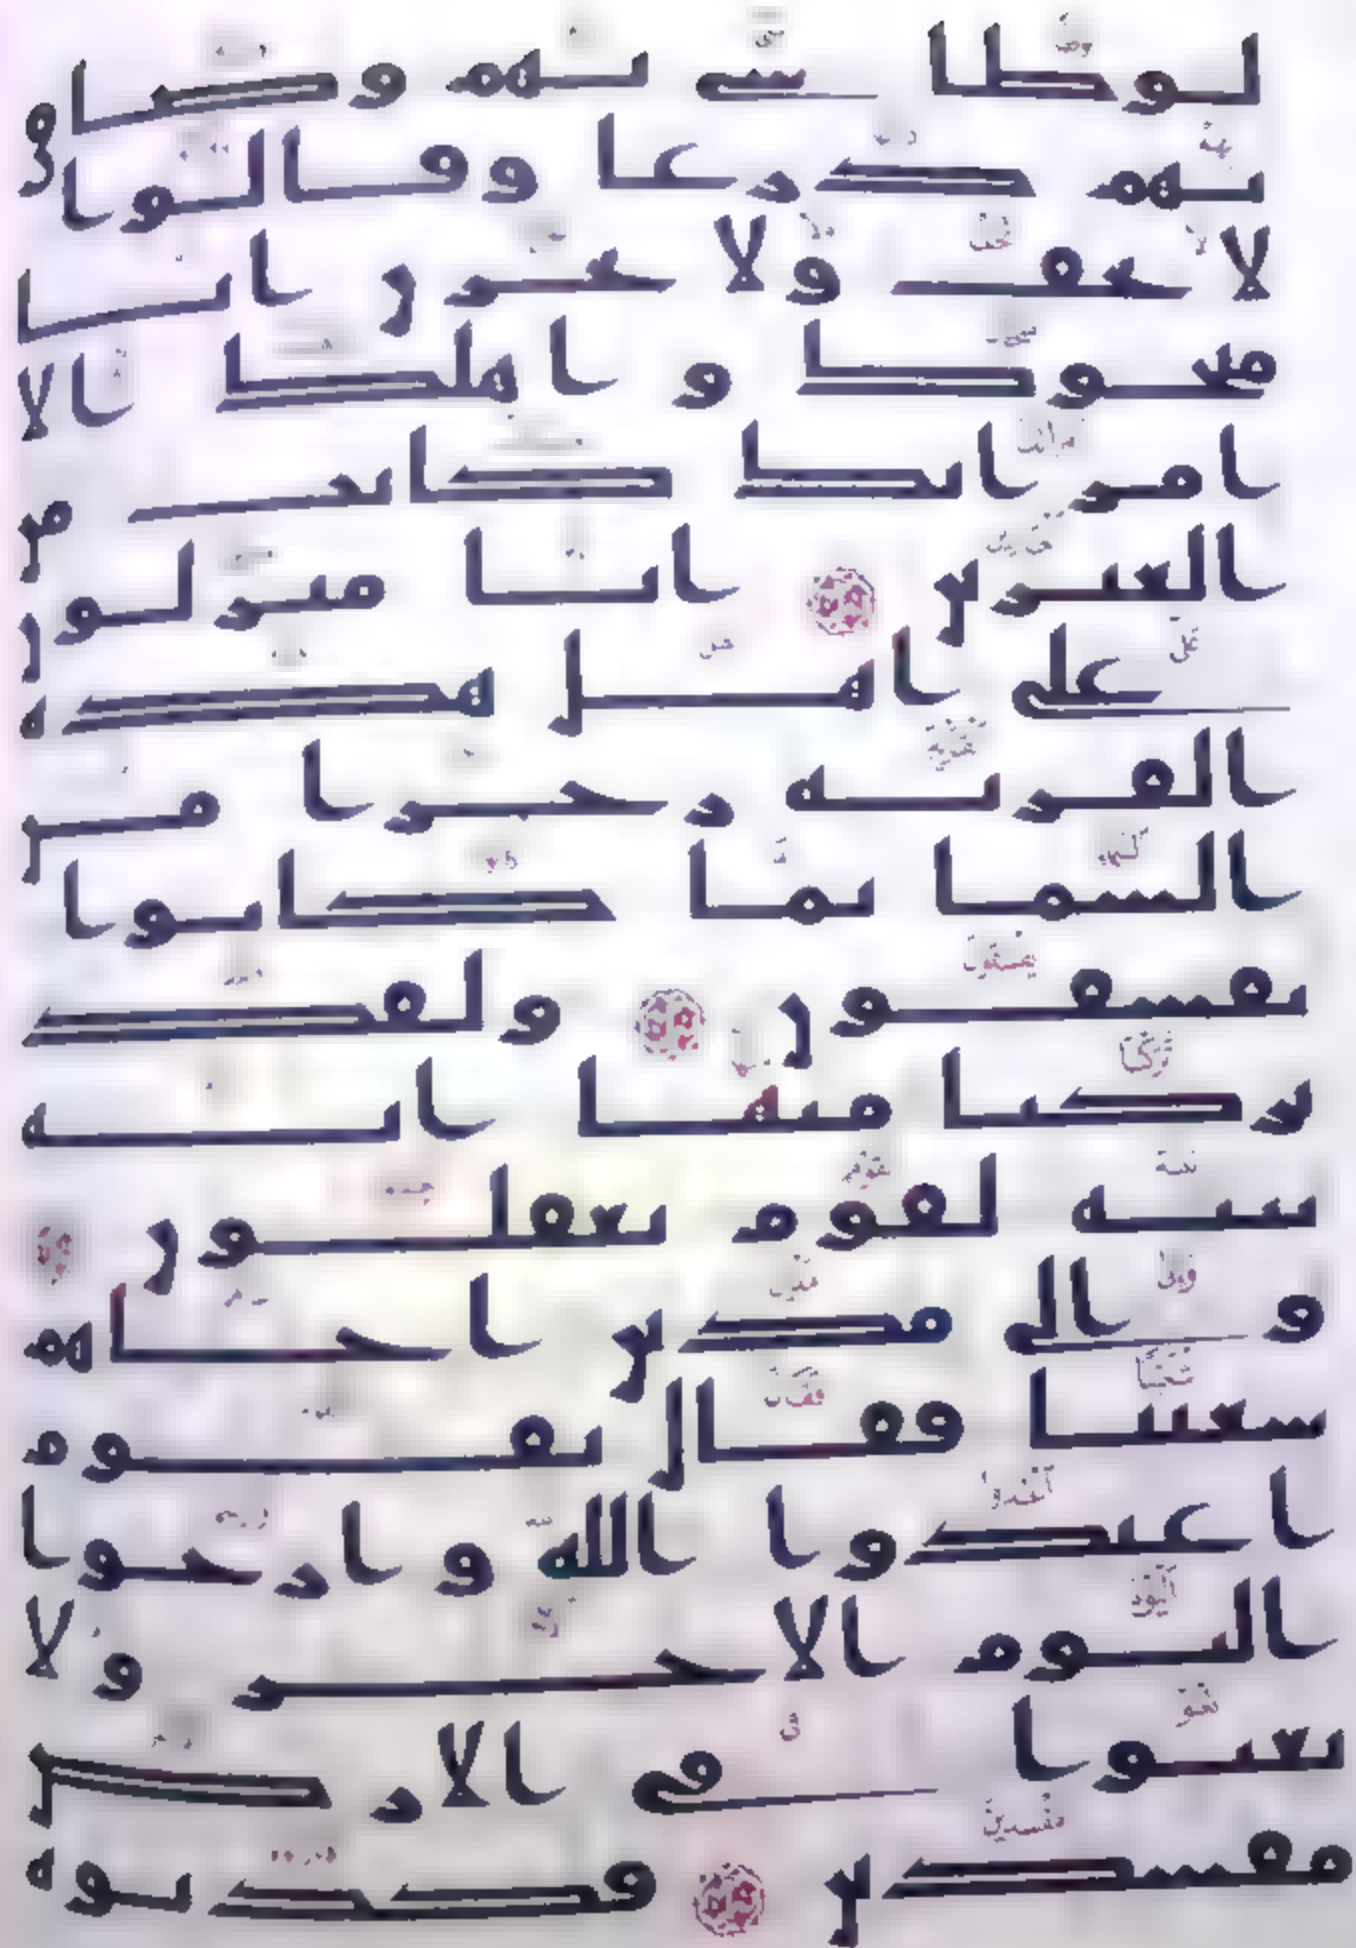 لوطا سى بهم وضاق
بهم ذرعا وقالوا
لا تخف ولا تحزن انا
منجوك واهلك الا
امراتك كانت من
الغبرين انا منزلون
على اهل هذه
القرية رجزا من
السما بما كانوا
يفسقون ولقد
تركنا منها اية
بينة لقوم يعقلون
والى مدين اخاهم
شعيبا فقال يقوم
اعبدوا الله وارجوا
اليوم الاخر ولا
تعثوا فى الارض
مفسدين فكذبوه